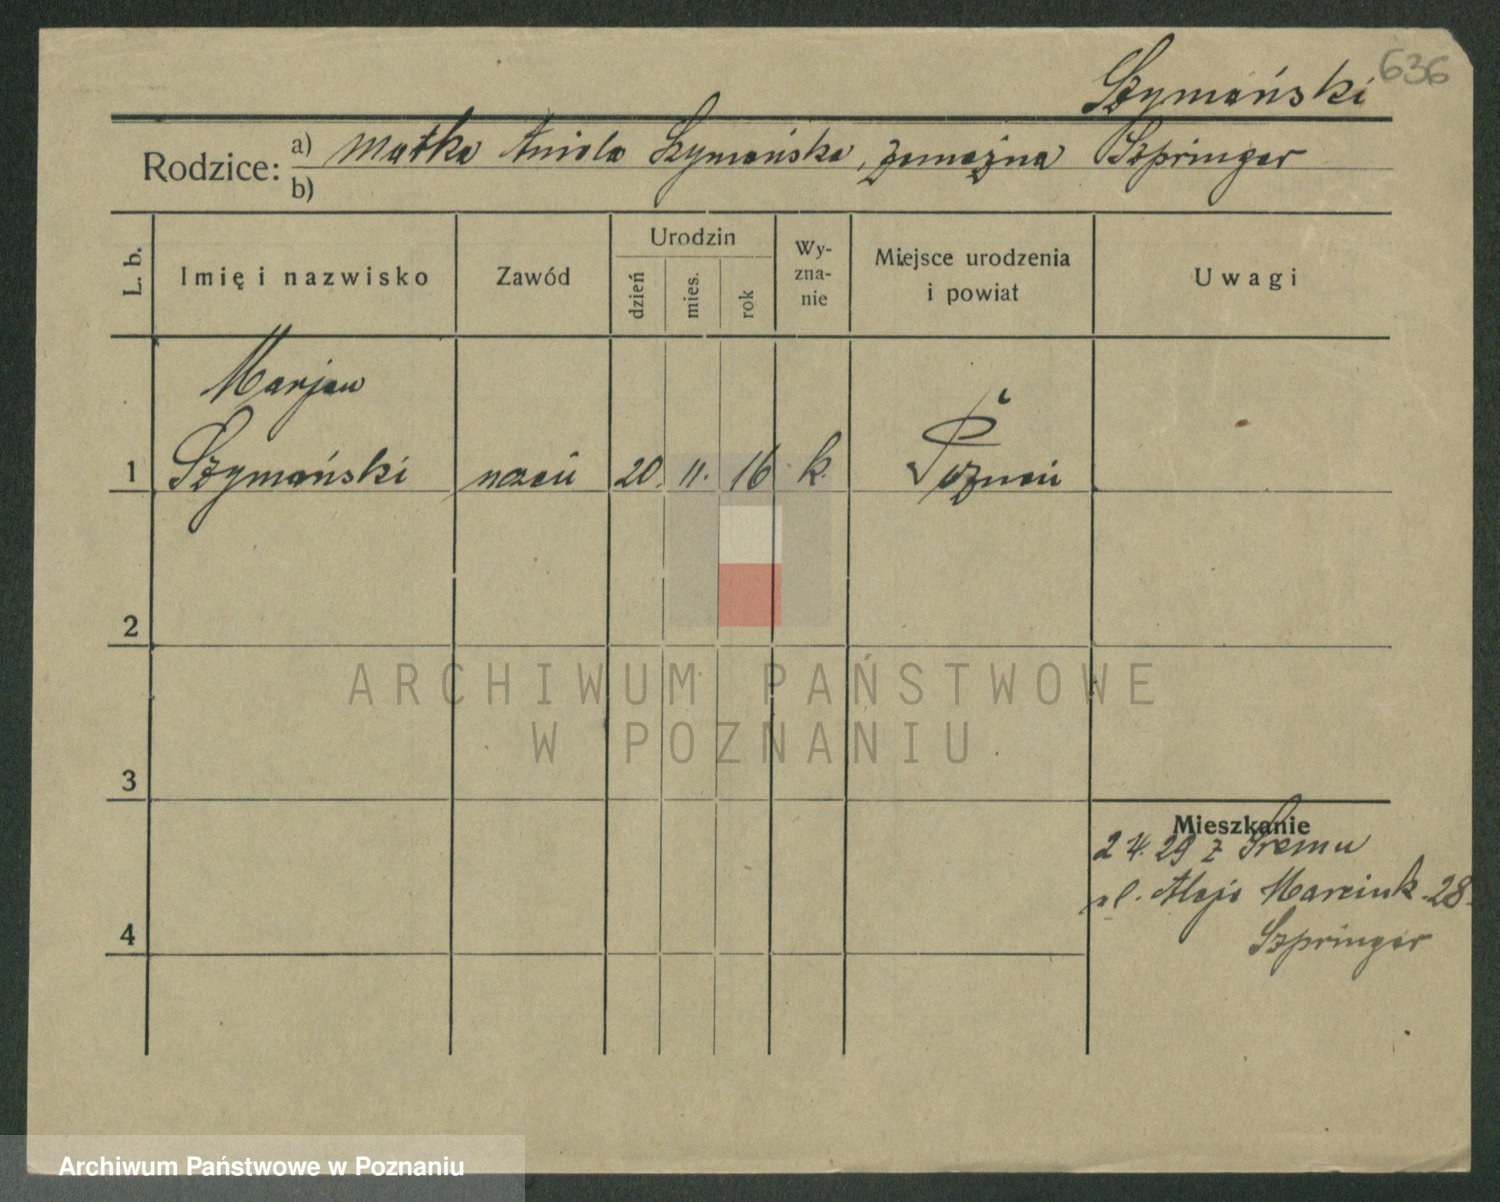 Szymański 636
Rodzice: a) Matka Aniela Szymańska, zamężna Szpringer
b)
L. b.
Imię i nazwisko
Zawód
Urodzin
dzień
mies.
rok
Wy-
zna-
nie
Miejsce urodzenia
i powiat
Uwagi
Marjan
1 Szymański uczeń 20. 11. 16 k. Poznań
2
ARCHIWUM PAŃSTWOWE
W POZNANIU
3
Mieszkanie
2 4. 29 z Śremu
ul. Aleje Marcink. 28
Szpringer
4
Archiwum Państwowe w Poznaniu